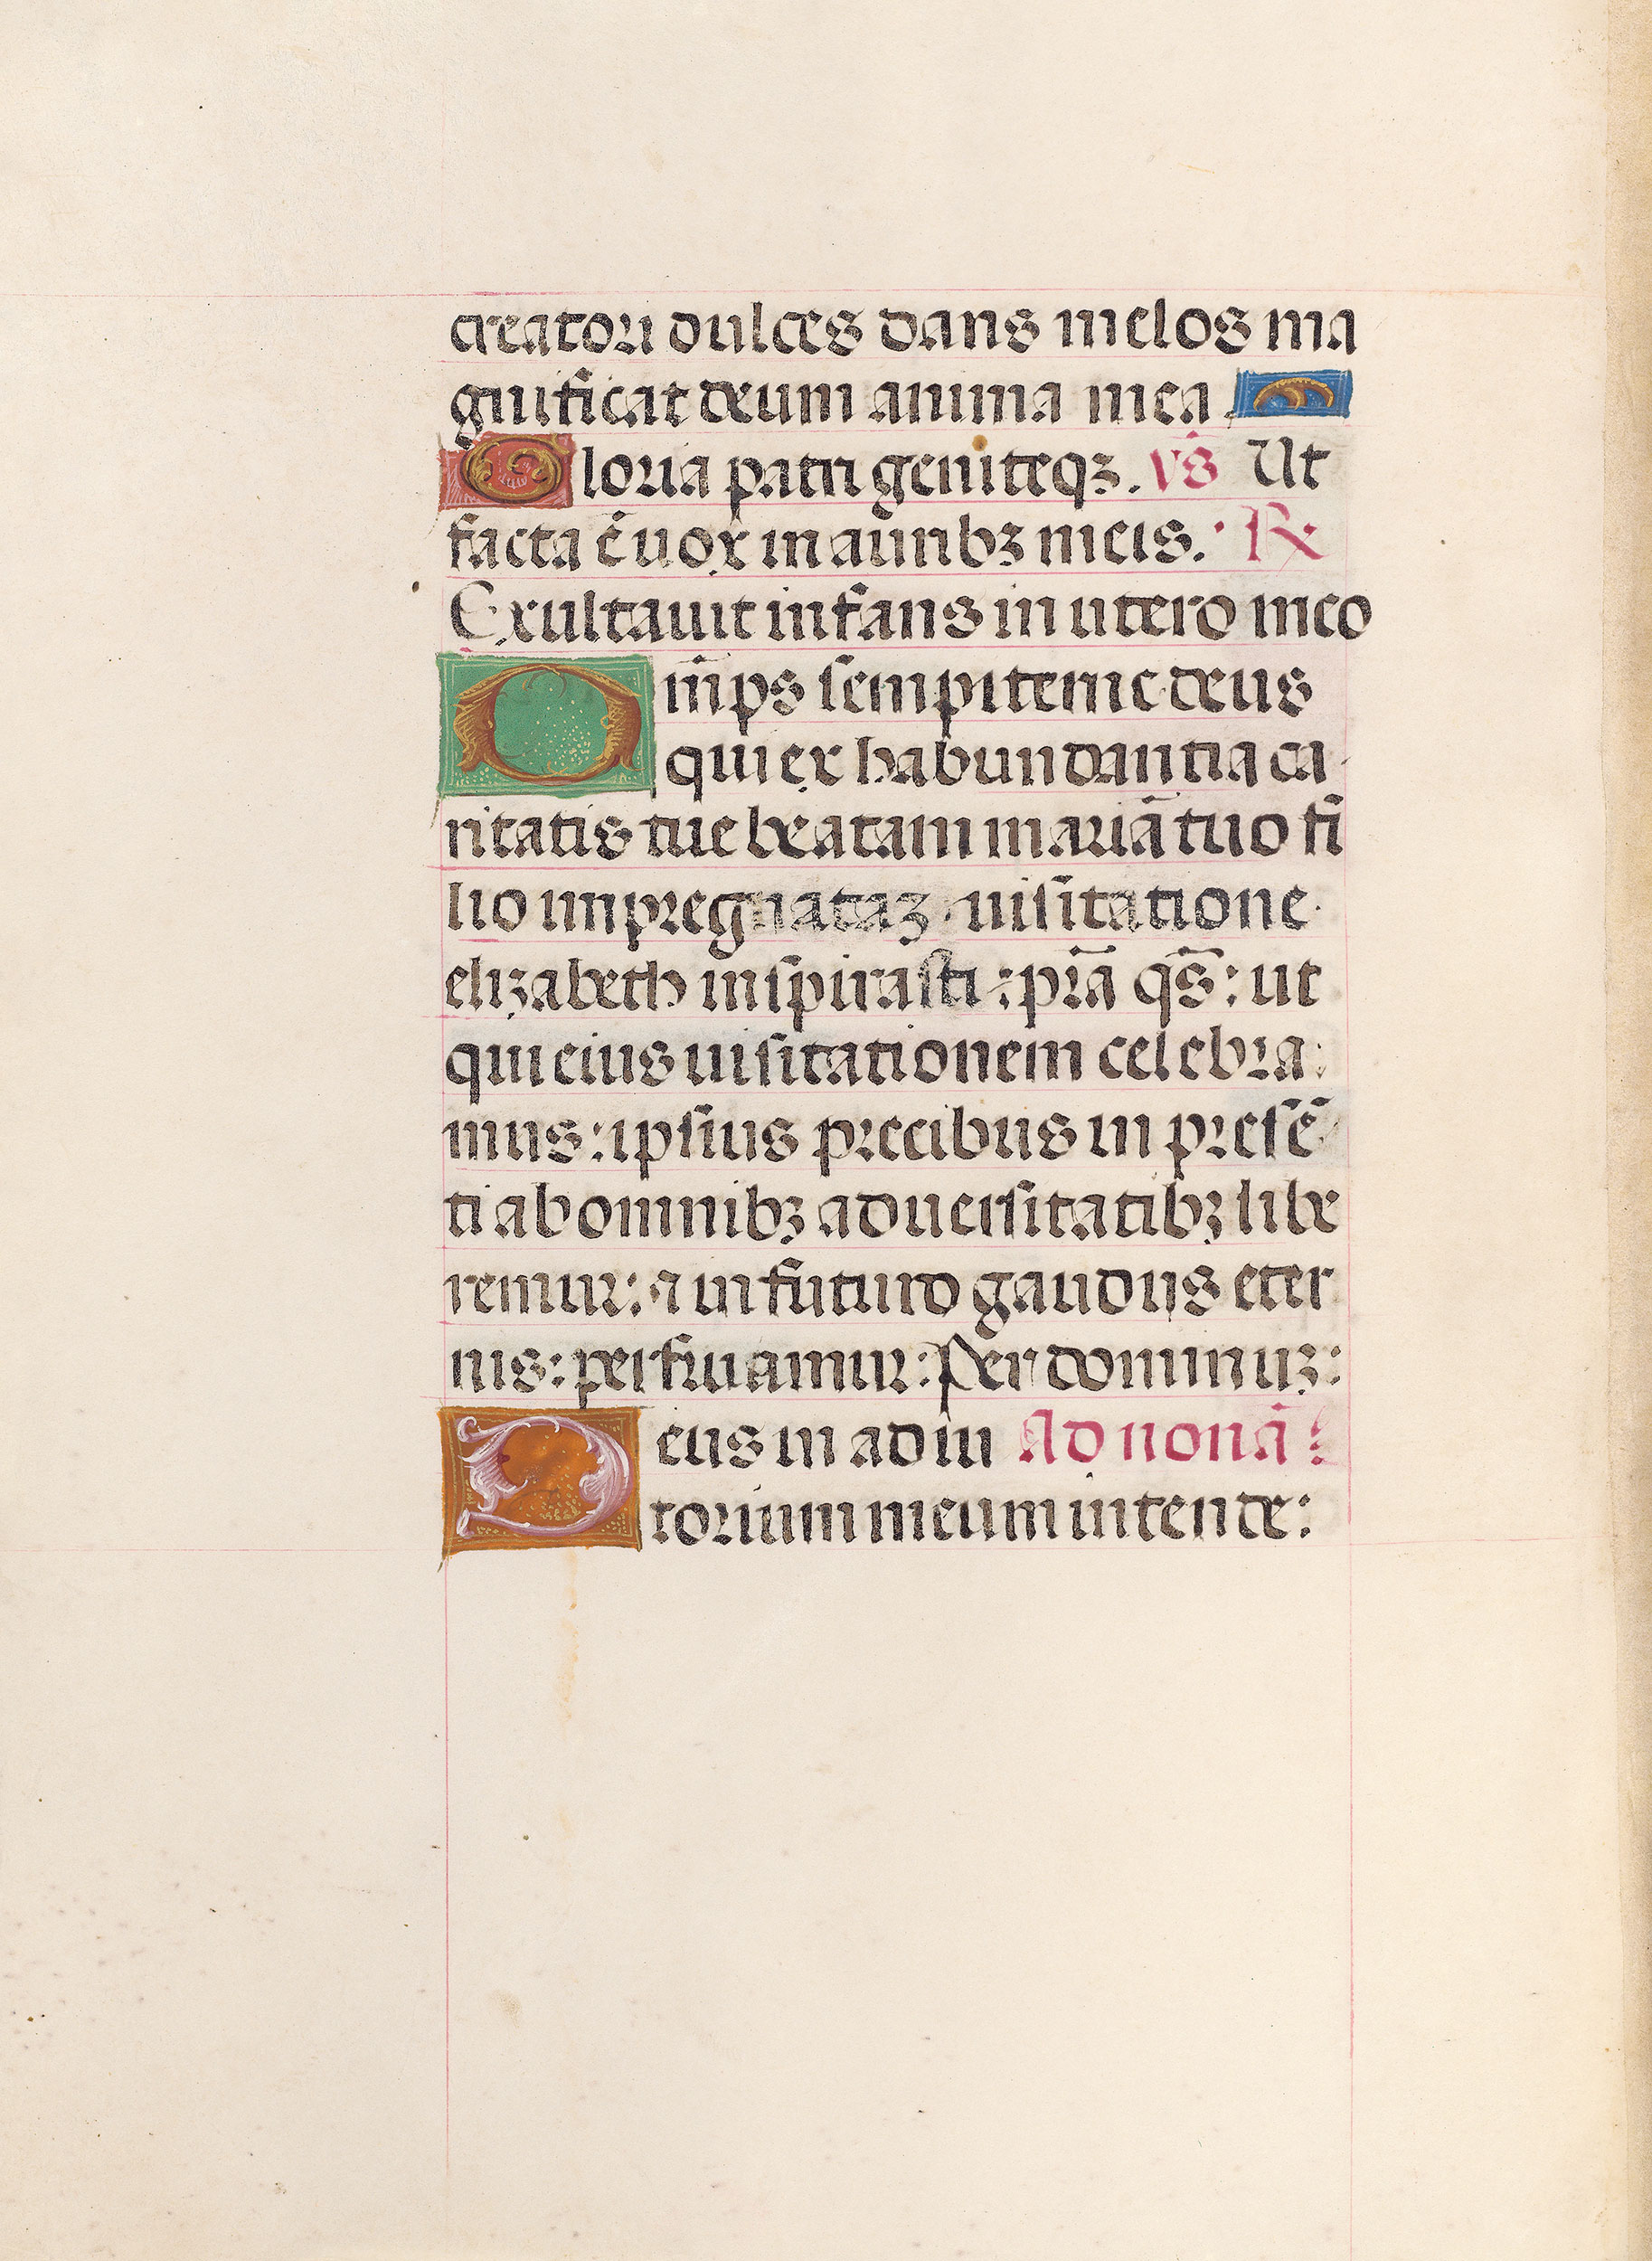 creatori dulces dans melos ma
gnificat deum anima mea.
Gloria patri genitoq3. vs Ut
facta ē uox in aurib3 meis. R
Exultauit infans in utero meo
Om̄ps sempiterne deus
qui ex habundantia ca
ritatis tue beatam mariā tuo fi
lio impregnata3 uisitatione
elizabeth inspirasti : pr̄a q̄s : ut
qui eius uisitationem celebra
mus : ipsius precibus in presē
ti ab omnib3 aduersitatib3 libe
remur : ⁊ in futuro gaudiis eter
nis : perfruamur : Per dominu3 :
Deus in adiu Ad nonā :
torium meum intende :